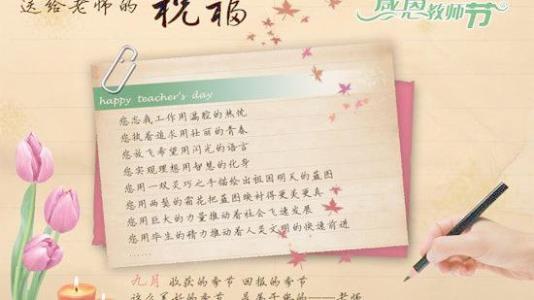 送给老师的 祝福
感恩教师节
happy teacher's day
您忠我工作用满腔的热忱
您执着追求用壮丽的青春
您放飞希望用闪光的语言
您实现理想用智慧的化身
您用一双灵巧之手描绘出祖国明天的蓝图
您用两鬓的霜花把蓝图映衬得更美更真
您用巨大的力量推动着社会飞速发展
您用毕生的精力推动着人类文明的快速前进
九月 收获的季节 回报的季节
这么美好的季节 是属于您的——老师